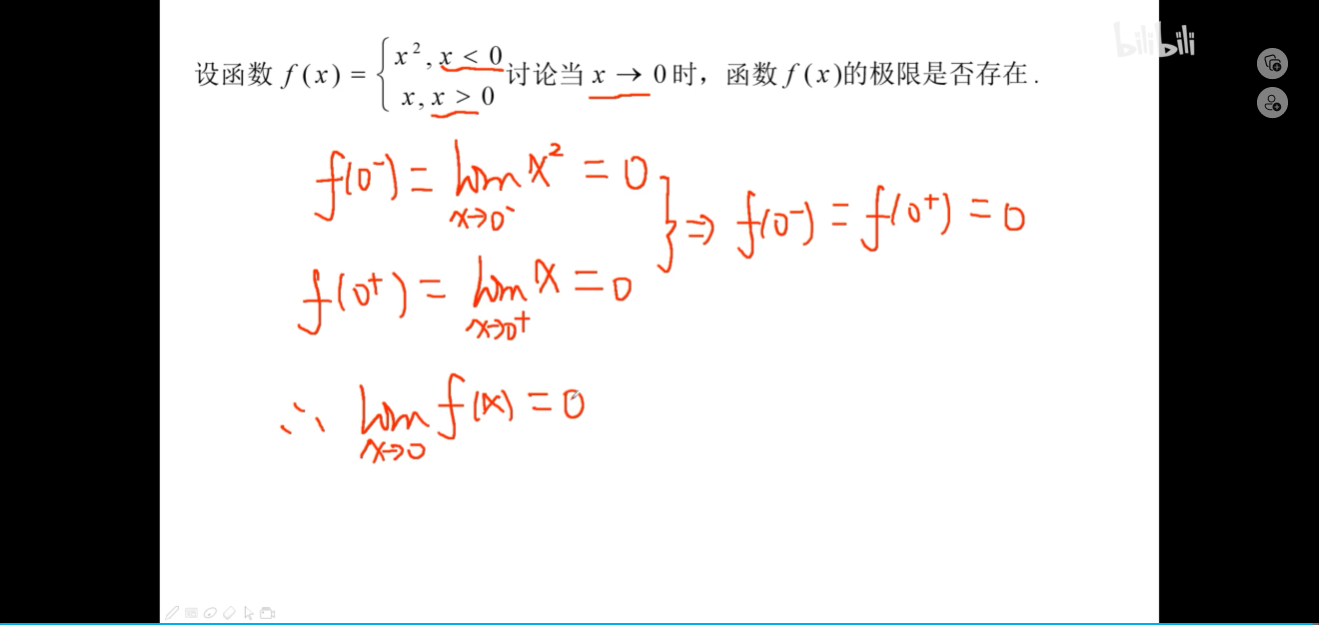 bilibili
设函数 f(x) = { x², x < 0
x, x > 0 讨论当 x → 0 时，函数 f(x)的极限是否存在.
f(0⁻) = lim x² = 0
x→0⁻
} ⇒ f(0⁻) = f(0⁺) = 0
f(0⁺) = lim x = 0
x→0⁺
∴ lim f(x) = 0
x→0